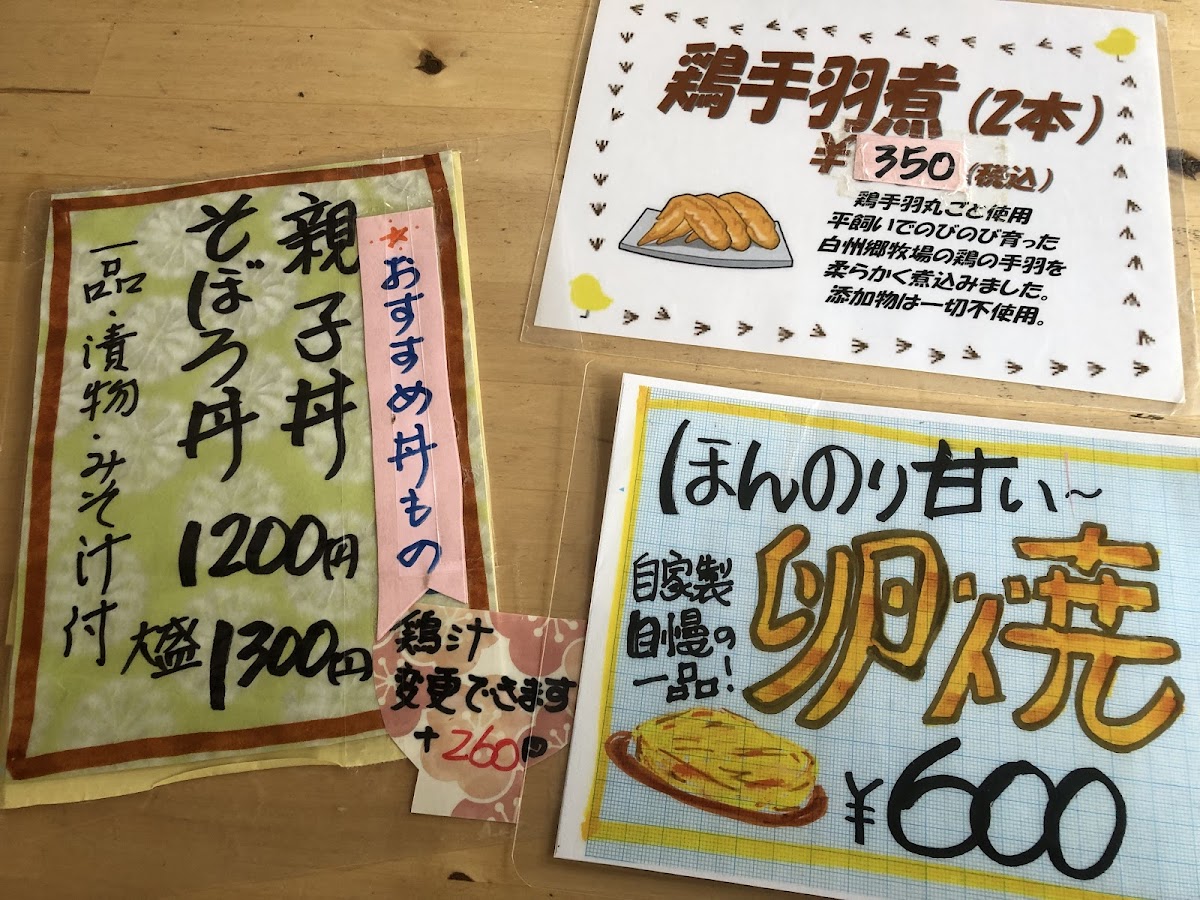 ★おすすめ丼もの
親子丼
そぼろ丼
1200円
大盛1300円
一品・漬物・みそ汁付
鶏汁
変更できます
+260円
鶏手羽煮(2本)
¥350(税込)
鶏手羽丸ごと使用
平飼いでのびのび育った
白州郷牧場の鶏の手羽を
柔らかく煮込みました。
添加物は一切不使用。
ほんのり甘い～
卵焼
自家製
自慢の
一品!
¥600